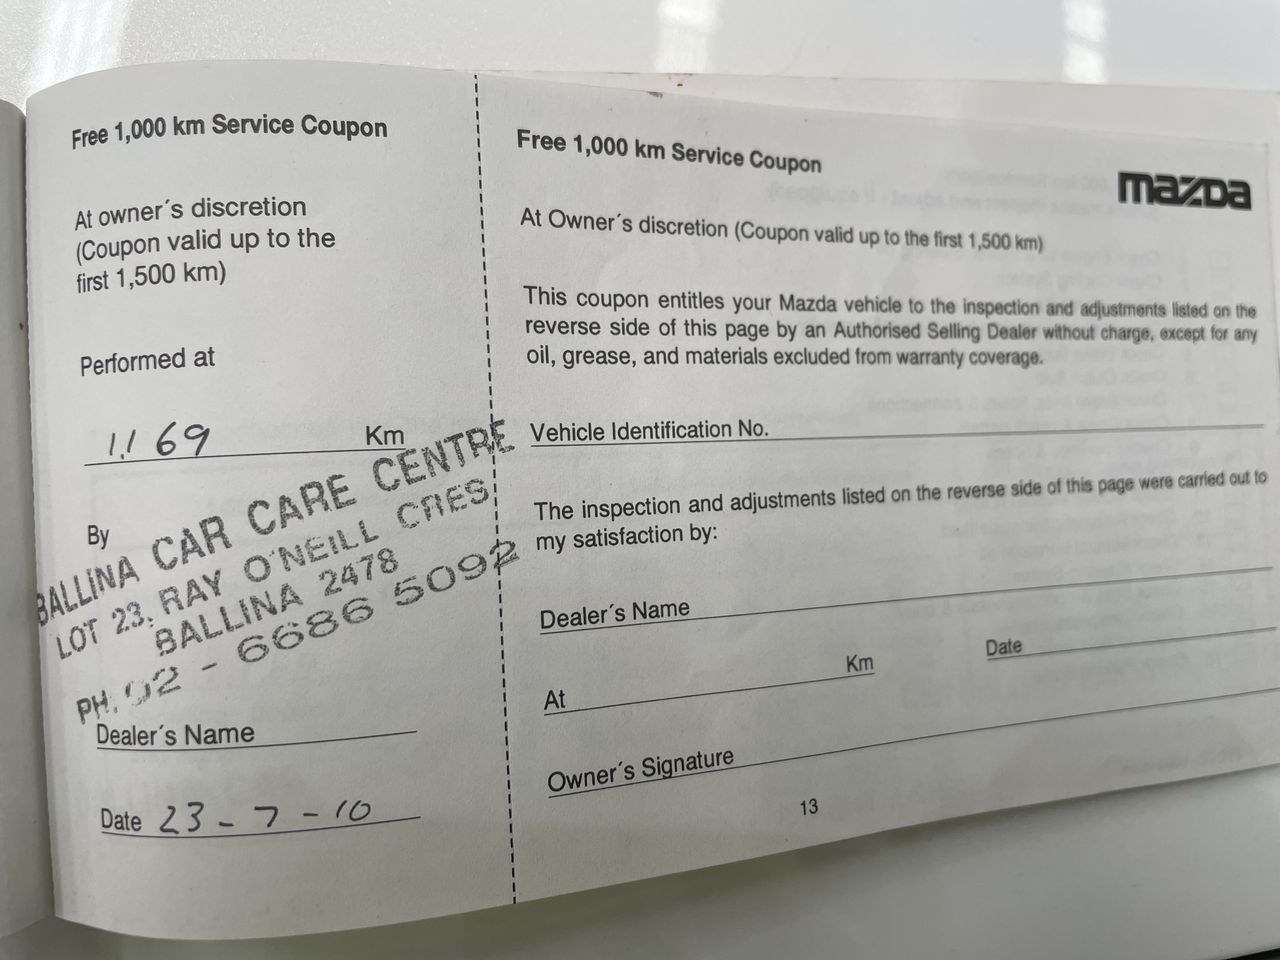 Free 1,000 km Service Coupon
At owner´s discretion
(Coupon valid up to the
first 1,500 km)
Performed at
1,169 Km
By
BALLINA CAR CARE CENTRE
LOT 23, RAY O'NEILL CRES
BALLINA 2478
PH. 02 - 6686 5092
Dealer´s Name
Date 23 - 7 - 10
Free 1,000 km Service Coupon
mazda
At Owner´s discretion (Coupon valid up to the first 1,500 km)
This coupon entitles your Mazda vehicle to the inspection and adjustments listed on the
reverse side of this page by an Authorised Selling Dealer without charge, except for any
oil, grease, and materials excluded from warranty coverage.
Vehicle Identification No.
The inspection and adjustments listed on the reverse side of this page were carried out to
my satisfaction by:
Dealer´s Name
At Km Date
Owner´s Signature
13